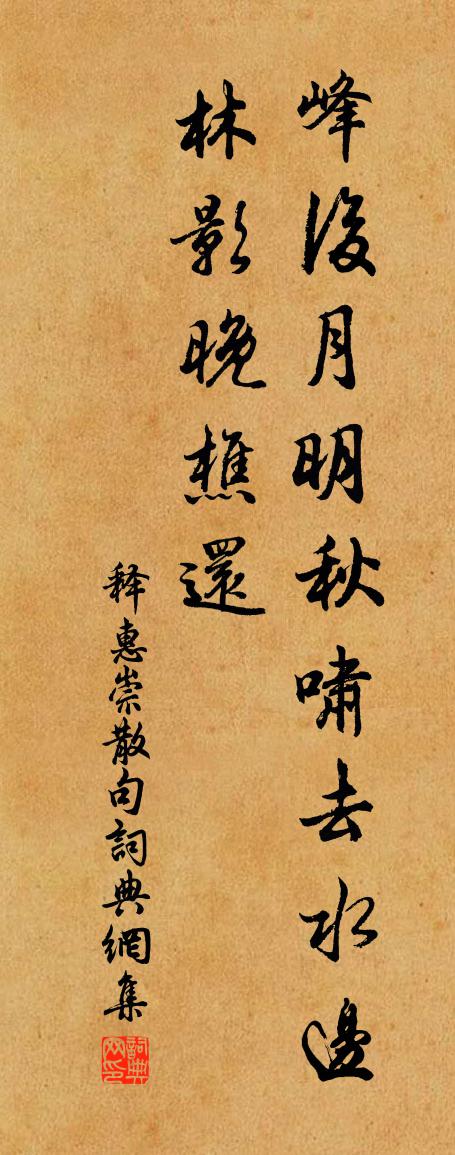 峰後月明秋嘯去水邊
林影晚樵還
释惠崇散句詞典網集
詞典网印